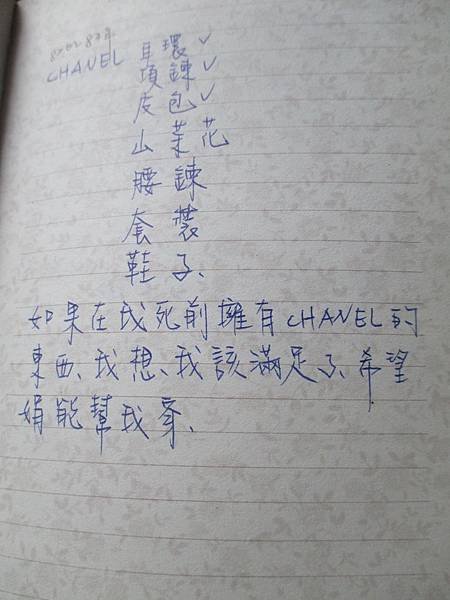 CHANEL 耳環✓
項鍊✓
皮包✓
山茉花
腰鍊
套裝
鞋子、
如果在我死前擁有CHANEL的
東西、我想、我該滿足了、希望
娟能幫我穿、